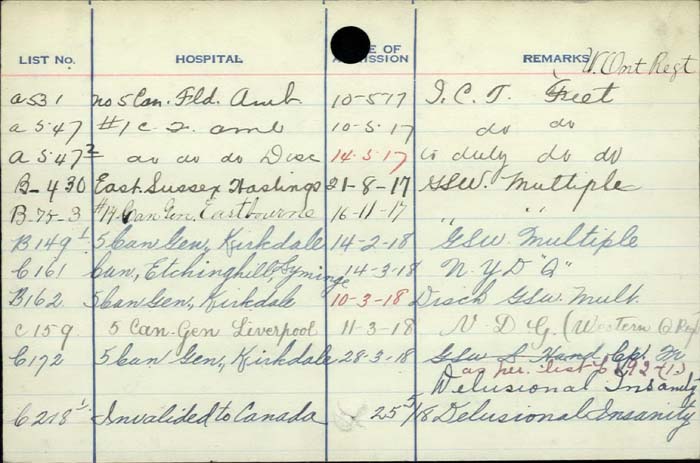 LIST No. HOSPITAL E OF ADMISSION REMARKS W. Ont Regt
a 531 no 5 Can. Fld. Amb. 10-5-17 I. C. T. Feet
a 547 #1 C. 2. amb 10-5-17 do do
a 547² do do do Disc 14-5-17 to duty do do
B-430 East. Sussex Hastings 21-8-17 GSW. Multiple
B-75-3 #14 Can Gen, Eastbourne 16-11-17 " "
B149¹ 5 Can Gen, Kirkdale 14-2-18 GSW. Multiple
C161 Can, Etchinghill, Lyminge 14-3-18 N.Y.D "Q"
B162 5 Can Gen, Kirkdale 10-3-18 Disch GSW. Mult.
C 159 5 Can-Gen Liverpool 11-3-18 V. D. G. (Western O Reg
C172 5 Can Gen, Kirkdale 28-3-18 GSW S Hand
as per list
Delusional Insanity
C218¹ Invalided to Canada 25 5/18 Delusional Insanity